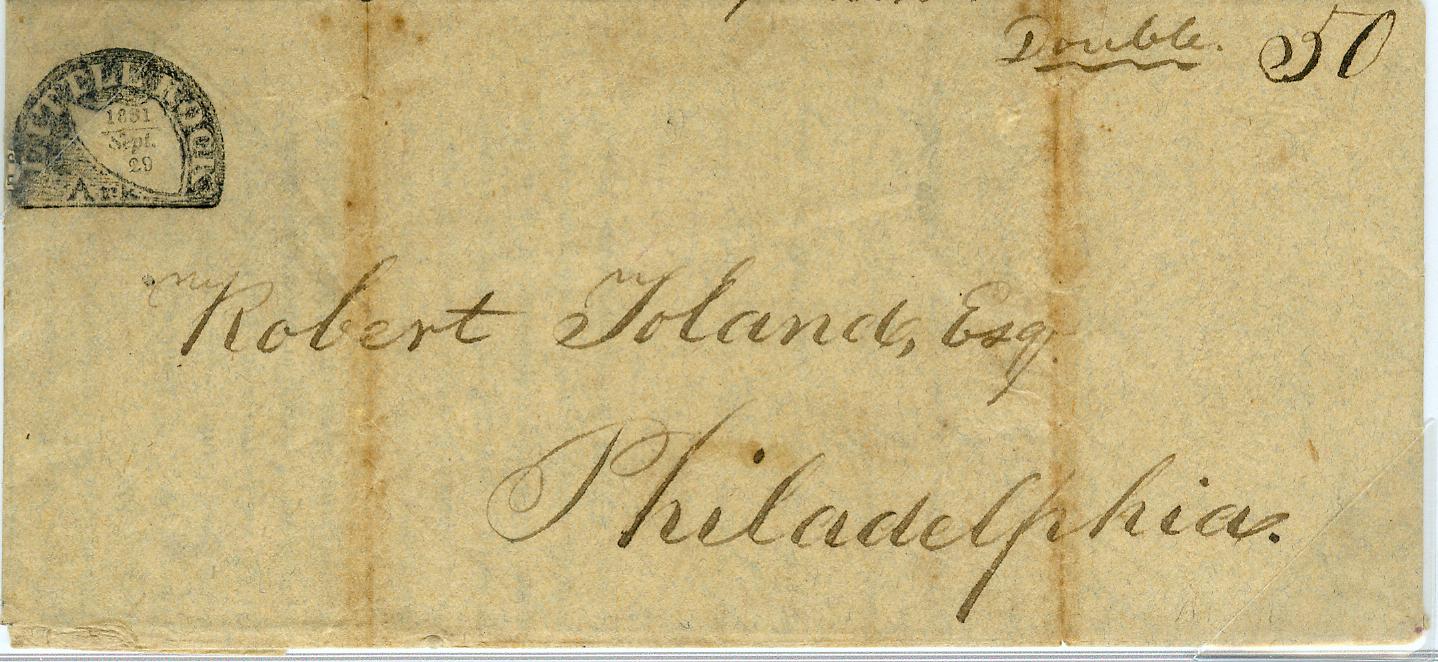 Double. 50
LITTLE ROCK
1831
Sept.
29
Ark.
Robert Toland, Esq.
Philadelphia.